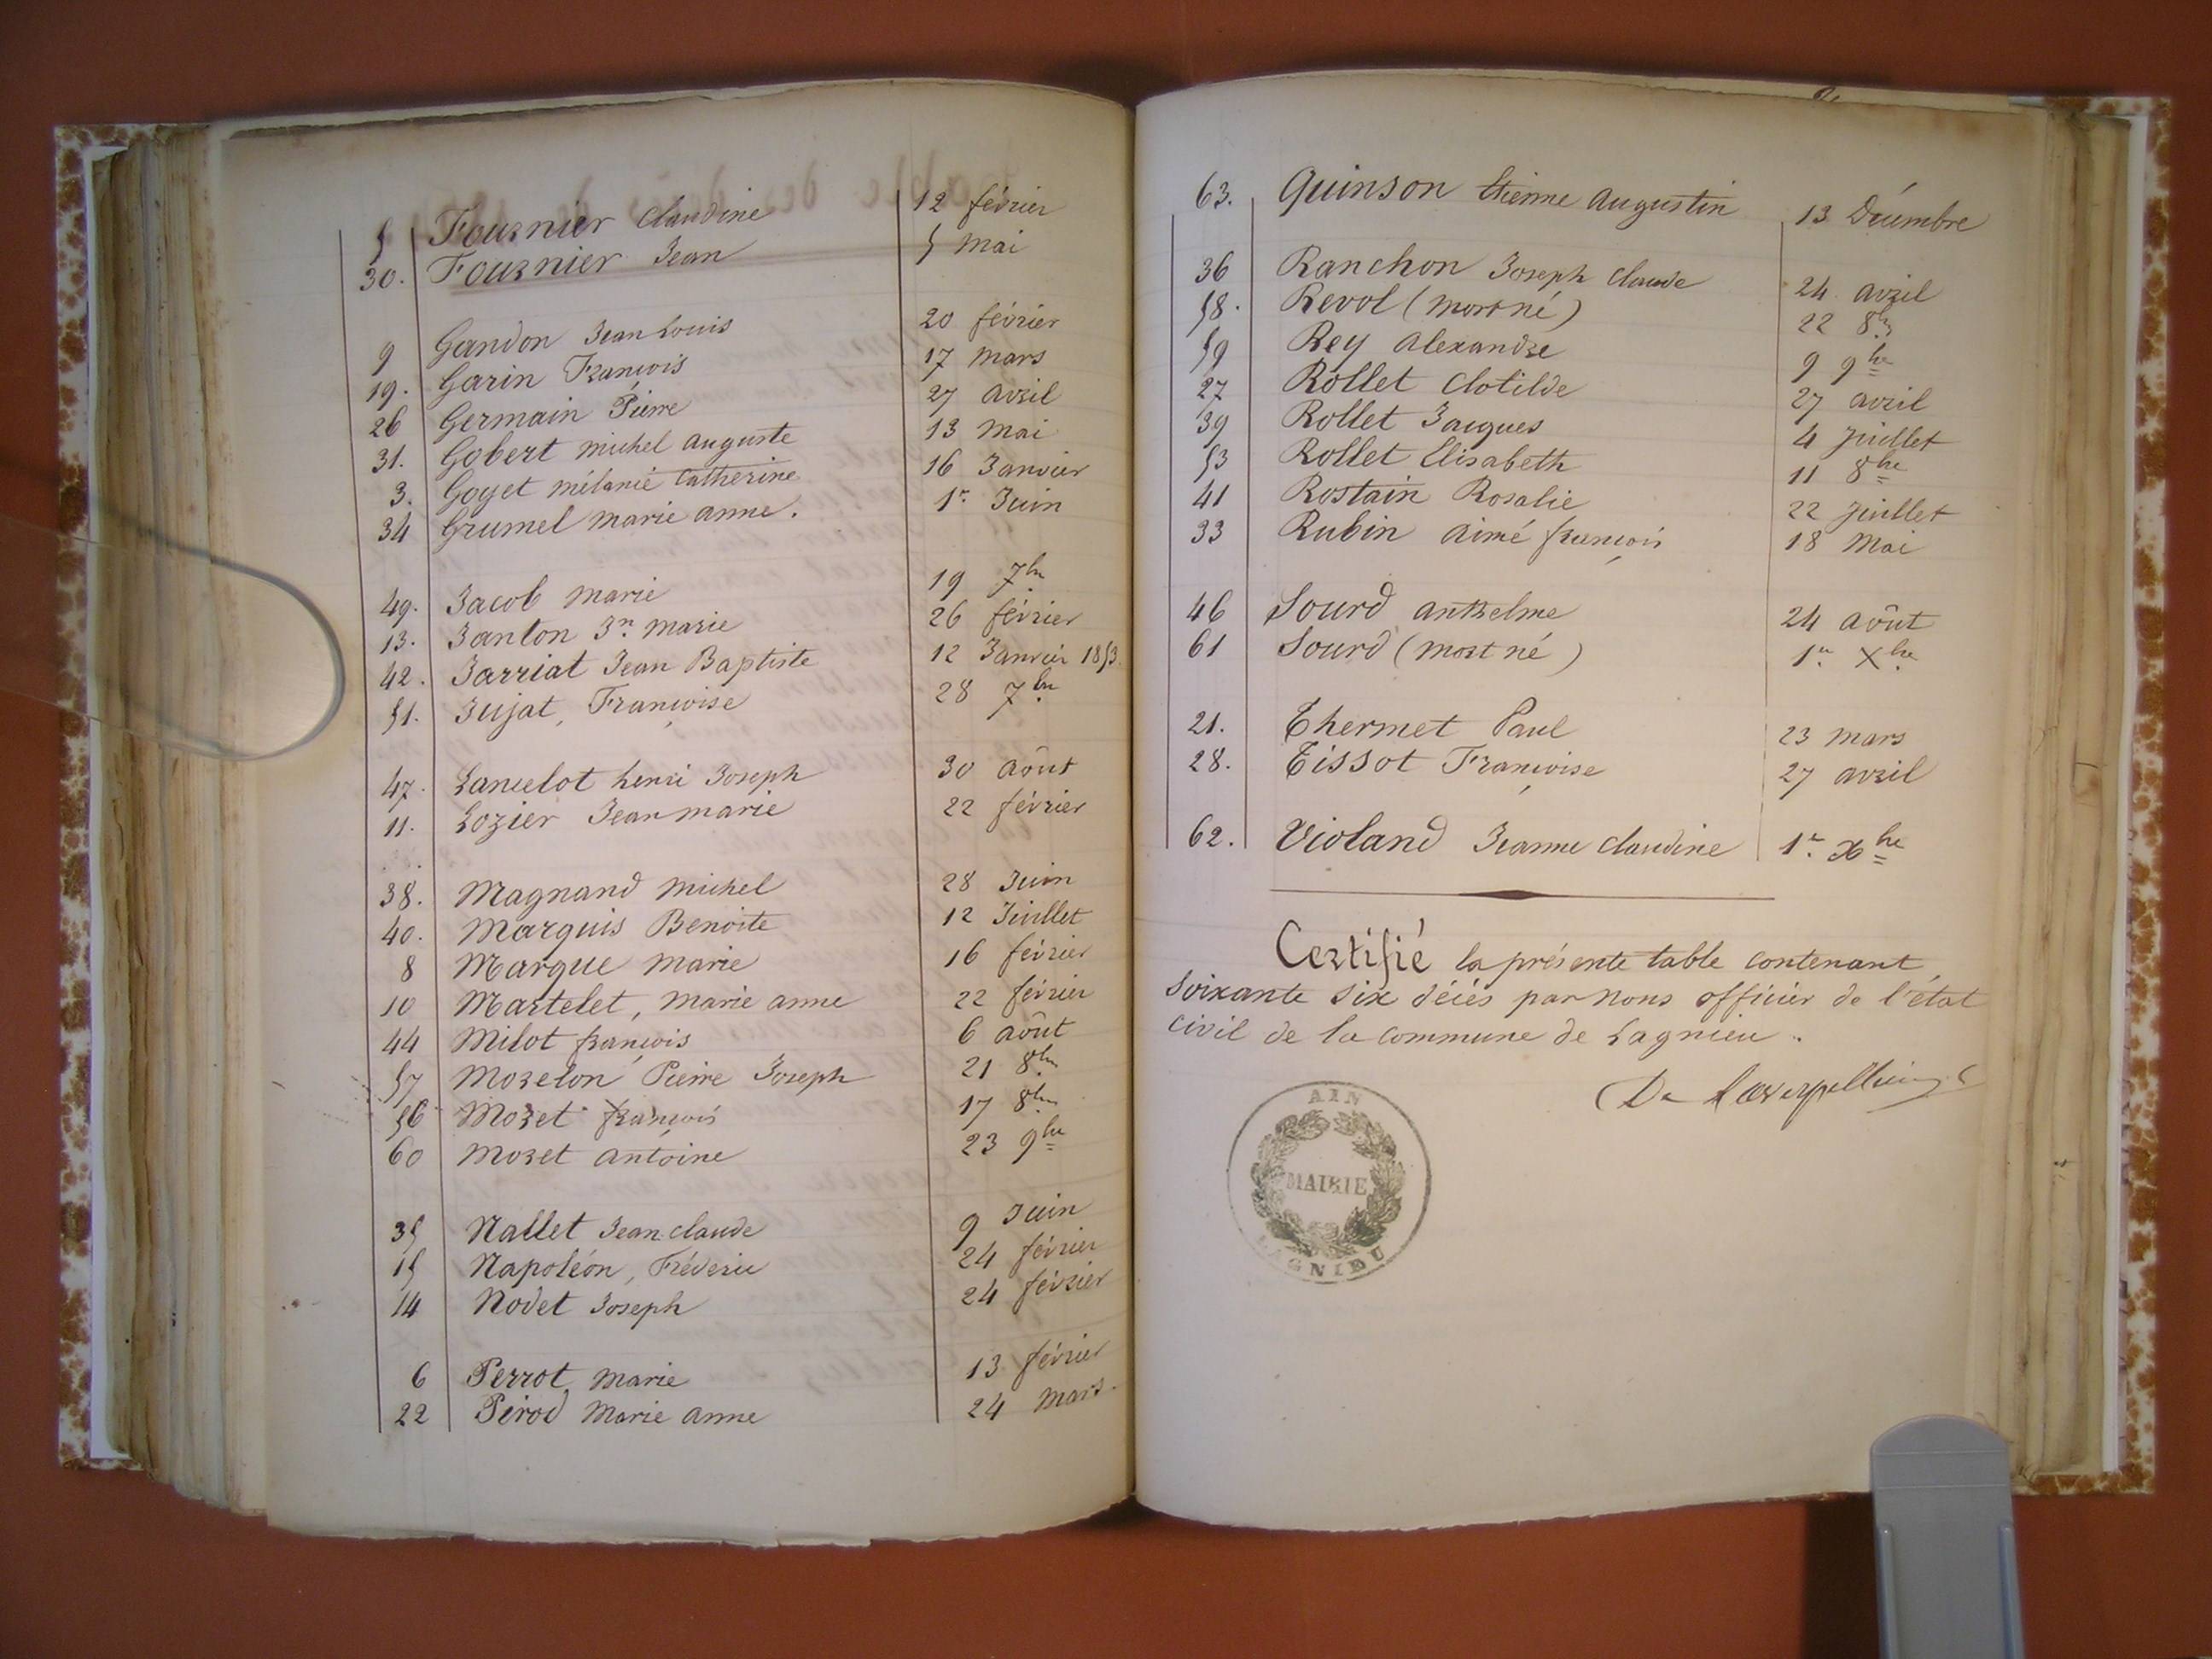 5 Fournier Claudine 12 février
30. Fournier Jean 5 Mai
9 Gandon Jean Louis 20 février
19. Garin François 17 Mars
26 Germain Pierre 27 Avril
31. Gobert Michel Auguste 13 Mai
3. Goyet Mélanie Catherine 16 Janvier
34 Grumel Marie Anne. 1r Juin
49. Jacob Marie 19 7bre
13. Janton Jn Marie 26 février
42. Jarriat Jean Baptiste 12 Janvier 1853.
51. Jujat, Françoise 28 7bre
47. Lancelot henri Joseph 30 Août
11. Lozier Jean Marie 22 février
38. Magnand Michel 28 Juin
40. Marquis Benoite 12 Juillet
8 Marque Marie 16 février
10 Martelet, Marie Anne 22 février
44 Milot françois 6 Août
57 Morelon Pierre Joseph 21 8bre
56 Moret françois 17 8bre
60 Moret Antoine 23 9bre
35 Nallet Jean Claude 9 Juin
15 Napoléon, Fréderic 24 février
14 Nodet Joseph 24 février
6 Perrot Marie 13 février
22 Pirod Marie Anne 24 Mars.
63. Quinson Etienne Augustin 13 Décembre
36 Ranchon Joseph Claude 24 Avril
58. Revol (mort né) 22 8bre
59 Rey Alexandre 9 9bre
27 Rollet Clotilde 27 Avril
39 Rollet Jacques 4 Juillet
53 Rollet Elisabeth 11 8bre
41 Rostain Rosalie 22 Juillet
33 Rubin Aimé françois 18 Mai
46 Sourd Anthelme 24 Août
61 Sourd (mort né) 1er Xbre
21. Thermet Paul 23 Mars
28. Tissot Françoise 27 Avril
62. Violand Jeanne Claudine 1r. Xbre
Certifié la présente table contenant
soixante six décés par nous officier de l'état
civil de la commune de Lagnieu.
AIN
MAIRIE
LAGNIEU